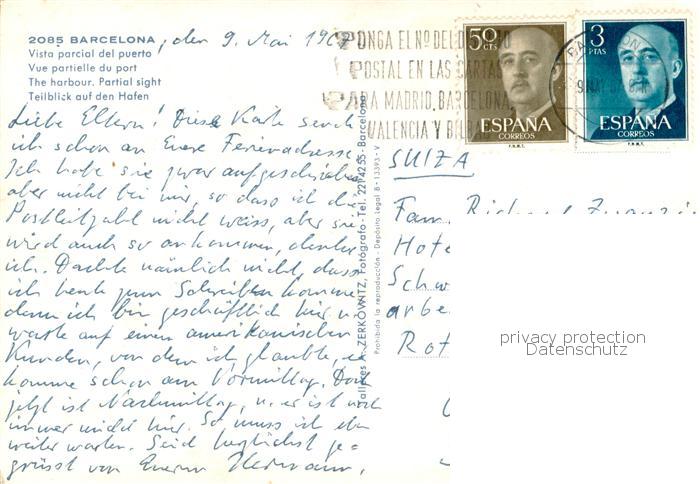 2085 BARCELONA, den 9. Mai 196
Vista parcial del puerto
Vue partielle du port
The harbour. Partial sight
Teilblick auf den Hafen
Liebe Eltern! Diese Karte sende
ich schon an Eure Ferienadresse.
Ich habe sie zwar aufgeschrieben
aber nicht bei mir, so dass ich die
Postleitzahl nicht weiss, aber sie
wird auch so ankommen, denke
ich. Dachte nämlich nicht, dass
ich heute zum Schreiben komme
denn ich bin geschäftlich hier u.
warte auf einen amerikanischen
Kunden, von dem ich glaubte, er
komme schon am Vormittag. Doch
jetzt ist Nachmittag, u. er ist noch
immer nicht hier. So muss ich eben
weiter warten. Seid herzlichst ge-
grüsst von Eurem Hermann.
Talleres A. ZERKOWITZ, Fotógrafo - Tel. 221 42 55 - Barcelona
Prohibida la reproducción - Depósito Legal B - 13393 - V
PONGA EL Nº DEL DISTRITO
POSTAL EN LAS CARTAS
PARA MADRID, BARCELONA,
VALENCIA Y BILBAO
50
CTS
ESPAÑA
CORREOS
F.N.M.T.
3
PTAS
ESPAÑA
CORREOS
F.N.M.T.
SUIZA
Fam. Richard
Hote
Schw
arbe
Rot
privacy protection
Datenschutz